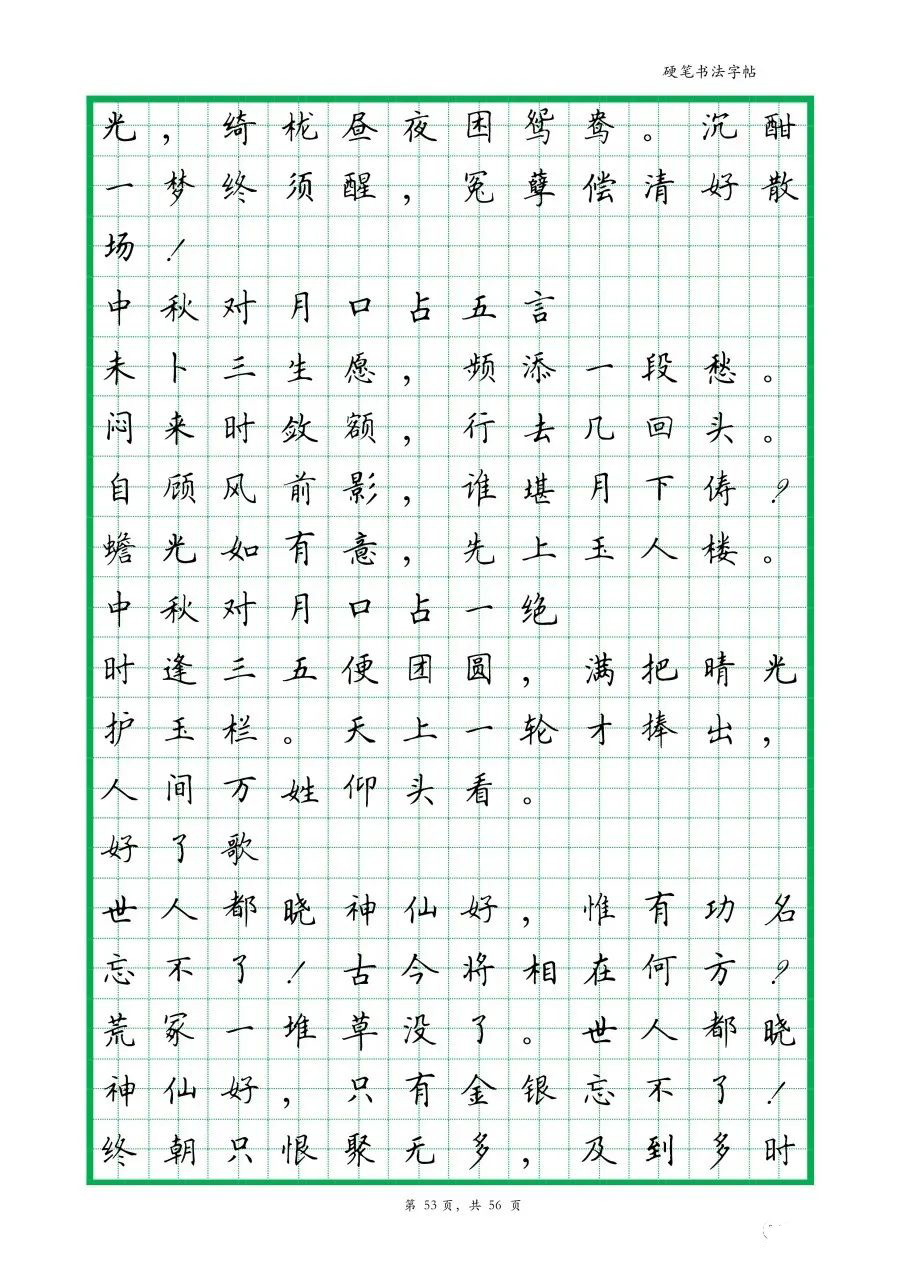 硬笔书法字帖
光，绮栊昼夜困鸳鸯。沉酣
一梦终须醒，冤孽偿清好散
场！
中秋对月口占五言
未卜三生愿，频添一段愁。
闷来时敛额，行去几回头。
自顾风前影，谁堪月下俦？
蟾光如有意，先上玉人楼。
中秋对月口占一绝
时逢三五便团圆，满把晴光
护玉栏。天上一轮才捧出，
人间万姓仰头看。
好了歌
世人都晓神仙好，惟有功名
忘不了！古今将相在何方？
荒冢一堆草没了。世人都晓
神仙好，只有金银忘不了！
终朝只恨聚无多，及到多时
第 53 页，共 56 页